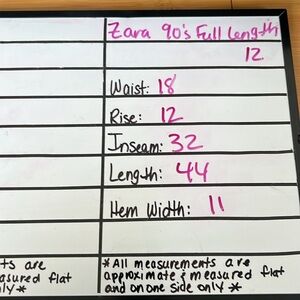 Zara 90's Full Length
12
Waist: 18
Rise: 12
Inseam: 32
Length: 44
Hem Width: 11
ts are
asured flat
nly*
*All measurements are
approximate & measured flat
and on one side only *